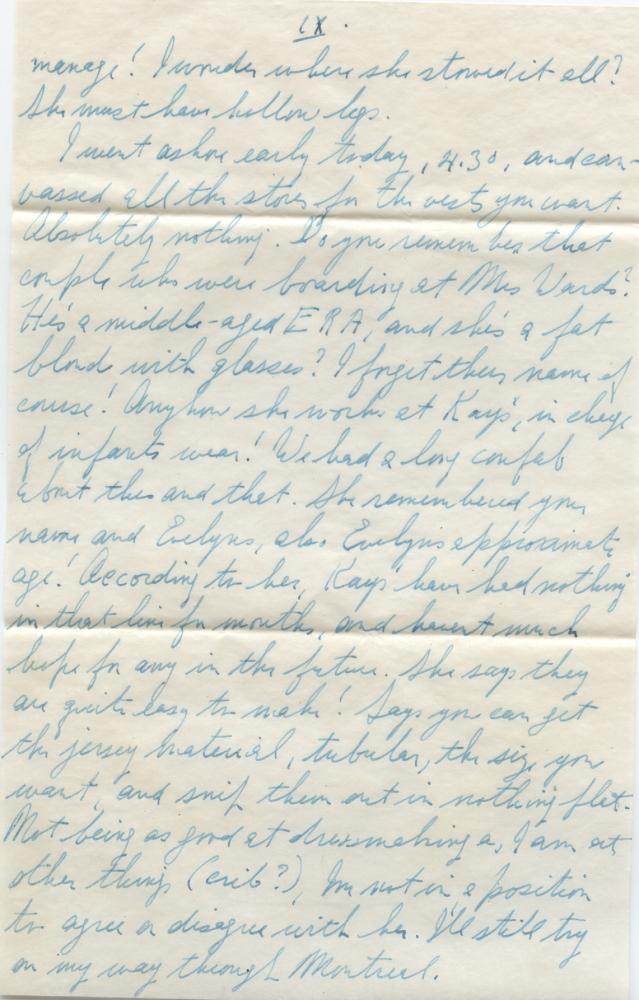 IX.
manage! I wonder where she stowed it all?
She must have hollow legs.
I went ashore early today, 4.30, and can-
vassed all the stores for the vests you want.
Absolutely nothing. Do you remember that
couple who were boarding at Mrs Wards?
He's a middle-aged ERA, and she's a fat
blond with glasses? I forget their name of
course! Anyhow she works at Kays, in charge
of infants wear! We had a long confab
about this and that. She remembered your
name and Evelyns, also Evelyns approximate
age! According to her, Kays have had nothing
in that line for months, and havent much
hope for any in the future. She says they
are quite easy to make! Says you can get
the jersey material, tubular, the size you
want, and snip them out in nothing flat.
Not being as good at dressmaking as I am at
other things (crib?), Im not in a position
to agree or disagree with her. I'll still try
on my way through Montreal.